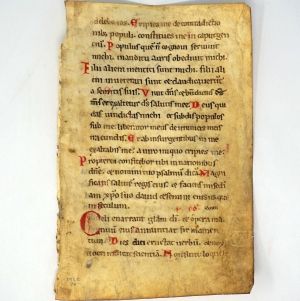 delebo eos. Eripies me de contradictio
nib; populi. constitues me in caput gen
Populus que n cognoui seruiuit
michi. in auditu auris obediuit michi.
Filii alieni mentiti sunt michi. filii ali
eni inueterati sunt et claudicauerunt
a semitis suis. Viuit dns et benedictus ds
ms et exaltetur ds salutis mee. Deus qui
das uindictas michi et subdis populos
sub me. liberator meus de inimicis meis
iracundis. Et ab insurgentibus in me
exaltabis me. a uiro iniquo eripies me.
Propterea confitebor tibi in nationibus
dne. et nomini tuo psalmu dica. Magni
ficans salutes regis eius. et faciens
am xpo suo dauid et semini eius usque
in seculum.
Celi enarrant glam di. et opera ma
nuum eius annuntiat firmamen
tum. Dies diei eructat uerbu. et nox
nocti indicat scientia. Non sunt loque